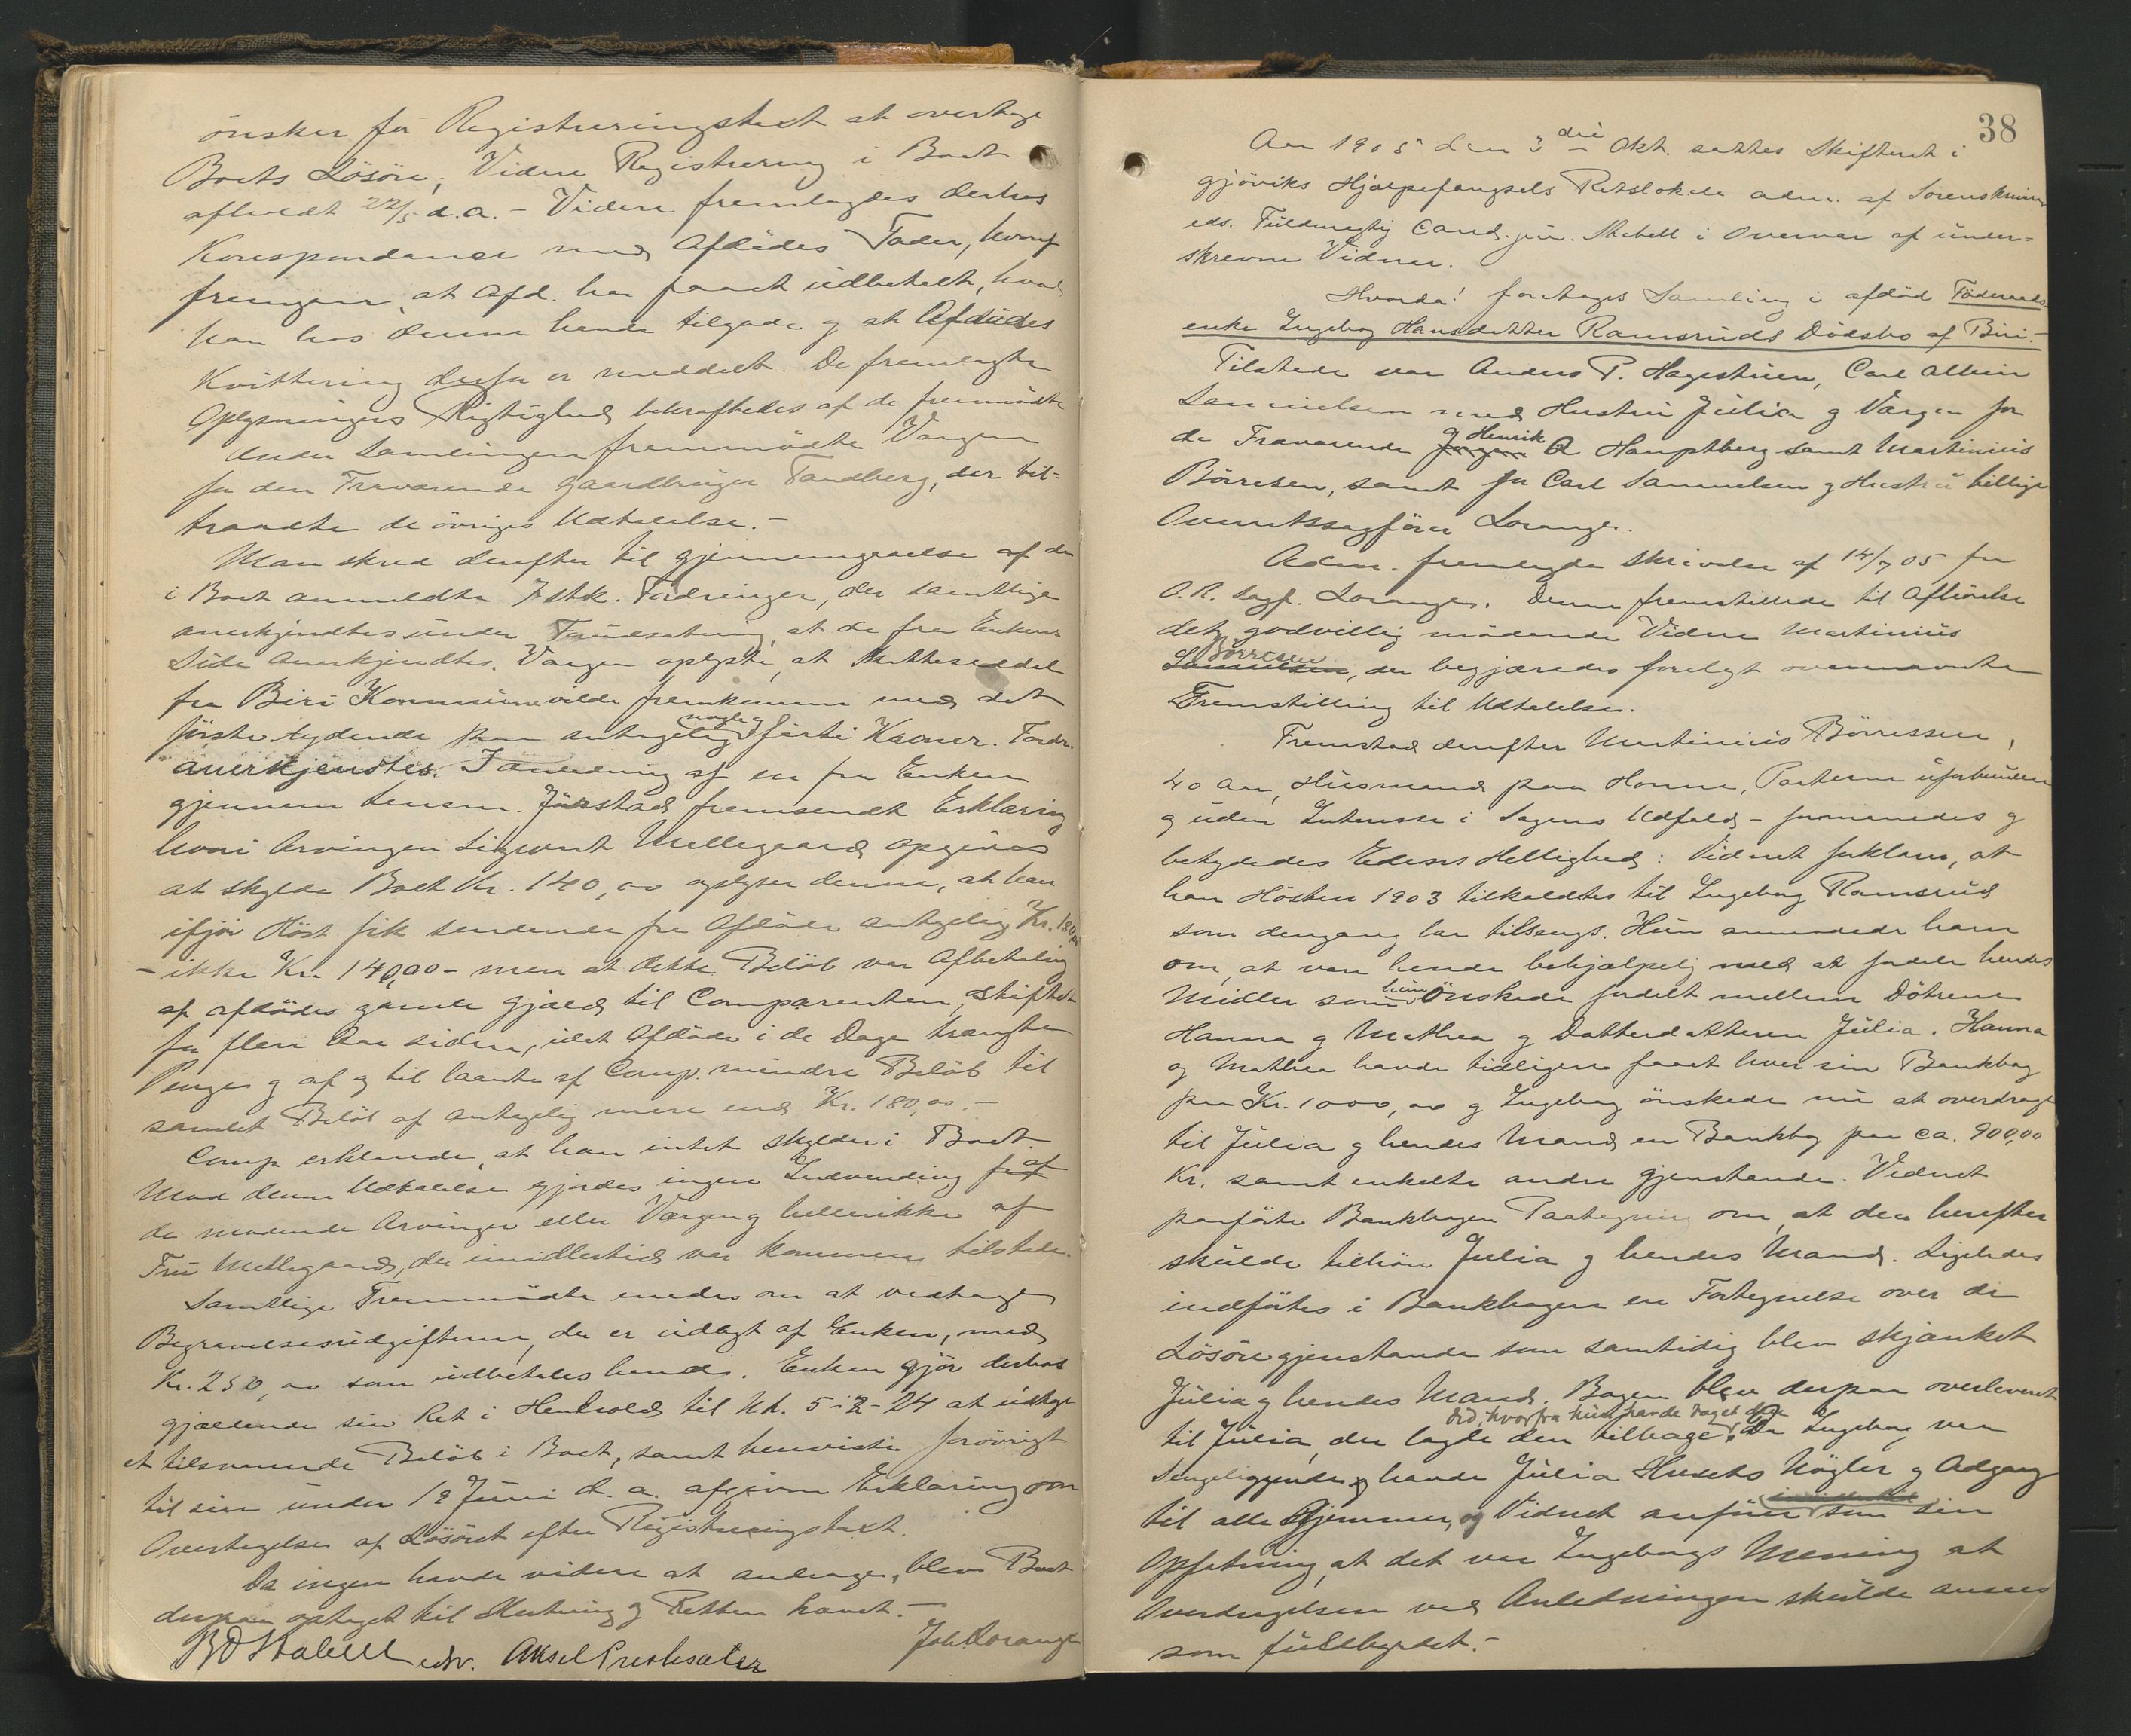 ønsker for Registreringstaxt at overtage
Boets Løsøre; Videre Registrering i Boet
afholdt 22/5 d.a. – Videre fremlagdes derhos
Korrespondance med Afdødes Fader, hvoraf
fremgaar, at Afd. har faaet udbetalt, hvad
han hos denne havde tilgode og at Afdødes
Kvittering derfor er meddelt. De fremlagte
Oplysningers Rigtighed bekræftedes af de fremmødte
Under Samlingen fremmødte Værgen
for den Fraværende Gaardbruger Tandberg, der til=
traadte de øvriges Udtalelse. –
Man skred derefter til Gjennemgaaelse af de
i Boet anmeldte 7 stk. Fordringer, der samtlige
anerkjendtes under Forudsætning, at de fra Enkens
Side anerkjendtes. Værgen oplyste, at Skatteseddel
fra Biri Kommune vilde fremkomme med det
første lydende paa antagelig nogle og førti Kroner. Fordr.
anerkjendtes. I Anledning af en fra Enken
gjennem Lensm. Jørstad fremsendt Erklæring
hvori Arvingen Sigvart Mellegaard opgives
at skylde Boet Kr. 140,00 oplyser denne, at han
ifjor Høst fik sendende fra Afdøde antagelig Kr. 180,00
– ikke Kr. 140,00 – men at dette Beløb var Afbetaling
af afdødes gamle Gjæld til Comparenten, stiftet
for flere Aar siden, idet Afdøde i de Dage trængte
Penge og af og til laante af Comp. mindre Beløb til
samlet Beløb af antagelig mere end Kr. 180,00. –
Comp. erklærede, at han intet skylder i Boet.
Mod denne Udtalelse gjordes ingen Indvending af
de mødende Arvinger eller Værgen og heller ikke af
Fru Mellegaard, der imidlertid var kommen tilstede.
Samtlige Fremmødte enedes om at vedtage
Begravelsesudgifterne, der er udlagt af Enken, med
Kr. 250,00 som udbetales hende. Enken gjør derhos
gjældende sin Ret i Henhold til N.L. 5-2-24 at udtage
et tilsvarende Beløb i Boet, samt henviste forøvrigt
til sin under 12 Juni d. a. afgivne Erklæring om
Overtagelse af Løsøret efter Registreringstaxt.
Da ingen havde videre at andrage, blev Boet
derpaa optaget til Slutning og Retten hævet. –
edsv. Aksel
Joh. Lorange
38
Aar 1905 den 3die Okt. sattes Skifteret i
Gjøviks Hjælpefængsels Retslokale adm. af Sorenskriver
eds. Fuldmægtig Cand. jur. Stabell i Overvær af under=
skrevne Vidner.
Hvorda! foretoges Samling i afdød Føderaads
enke Ingeborg Hansdatter Ramsruds Dødsbo af Biri. –
Tilstede var Anders P. Hagestuen, Carl Albin
Samuelsen med Hustru Julia og Værgen for
de Fraværende og Henrik O Hauptberg samt Martinius
Børresen, samt for Carl Samuelsen og Hustru billige
Overretssagfører Lorange.
Adm. fremlagde Skrivelse af 14/7 05 fra
O.R. Sagf. Lorange. Denne fremstillede til Afhørelse
det godvillig mødende Vidne Martinius
Børresen, der begjæredes forelagt ovennævnte
Fremstilling til Udtalelse.
Fremstod derefter Martinius Børressen,
40 Aar, Husmand paa Honne, Parterne uforbunden
og uden Interesse i Sagens Udfald – formanedes og
betydedes Edens Hellighed: Vidnet forklarer, at
han Høsten 1903 tilkaldtes til Ingeborg Ramsrud
som dengang laa tilsengs. Hun anmodede ham
om, at være hende behjælpelig med at fordele hendes
Midler som hun ønskede fordelt mellem Døtrene
Hanna og Mathea og Datterdatteren Julia. Hanna
og Mathea havde tidligere faaet hver sin Bankbog
paa Kr. 1000,00 og Ingeborg ønskede nu at overdrage
til Julia og hendes Mand en Bankbog paa ca. 900,00
Kr. samt enkelte andre Gjenstande. Vidnet
paaførte Bankbogen Paategning om, at den herefter
skulde tilhøre Julia og hendes Mand. Ligeledes
indførtes i Bankbogen en Fortegnelse over de
Løsøregjenstande som samtidig blev skjænket
Julia og hendes Mand. Bogen blev derpaa overleveret
til Julia, der lagde den tilbage did, hvorfra hun havde taget den. Da Ingeborg var
Sengeliggende, havde Julia Husets Nøgler og Adgang
til alle Gjemmer, og Vidnet anfører som sin
Opfatning, at det var Ingeborgs Mening at
Overdragelsen ved Anledningen skulde ansees
som fuldbyrdet. –